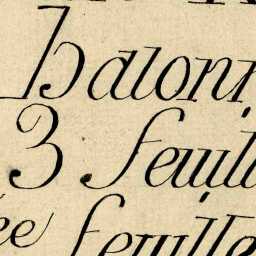 batonn
3 feuill
ée feuille